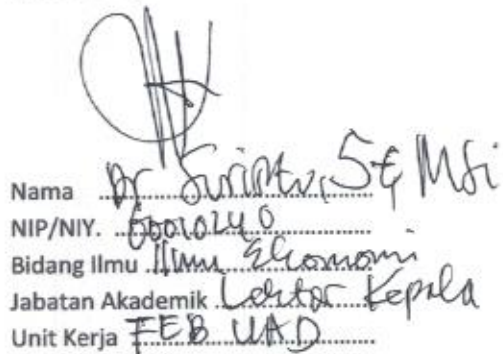 Nama Dr Suripto, SE, MSi
NIP/NIY. 60010240
Bidang Ilmu Ilmu Ekonomi
Jabatan Akademik Lektor Kepala
Unit Kerja FEB UAD